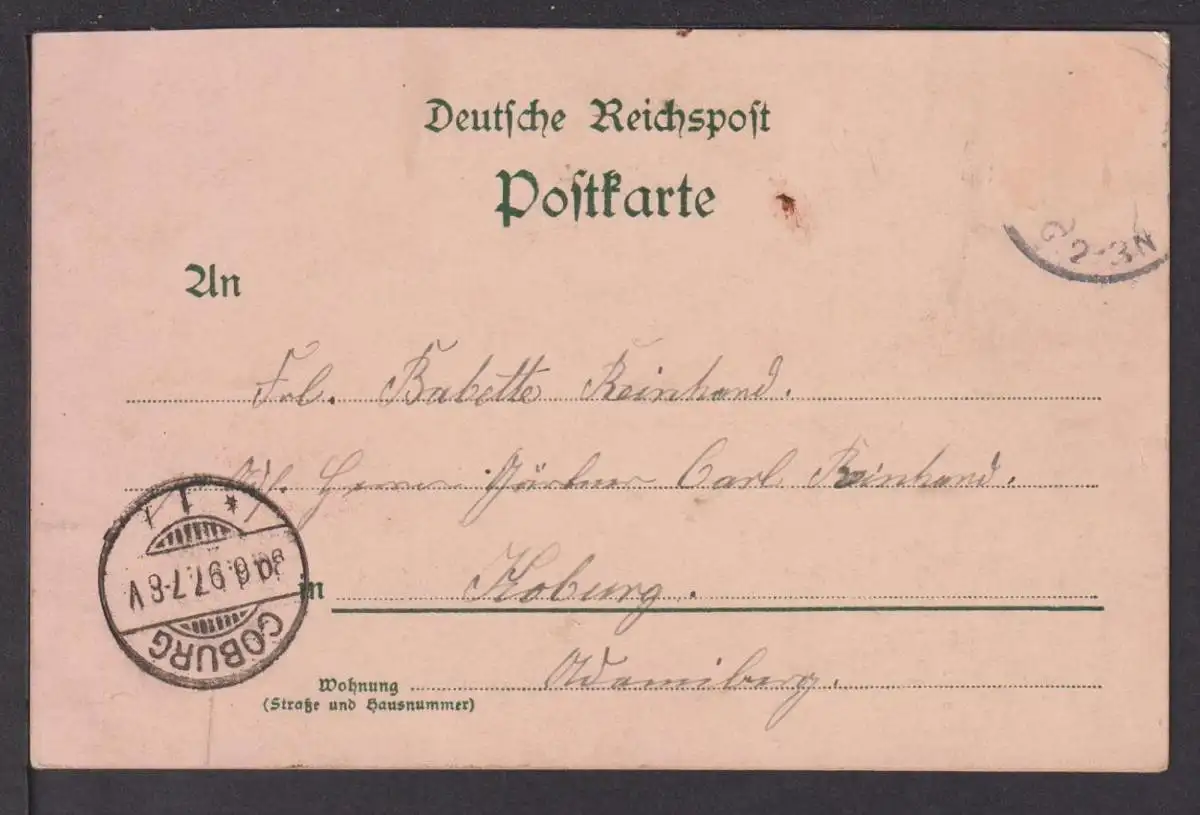 Deutsche Reichspost
Postkarte
G. 2-3N
An
Frl. Babette Reinhard.
Herrn Gärtner Carl Reinhard.
in Koburg.
Wohnung Adamiberg.
(Straße und Hausnummer)
1 *
30.6.97.7-8V
COBURG